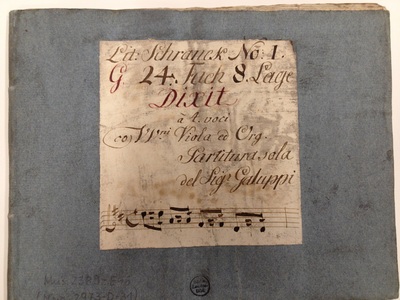 Lit: Schranck No: 1.
G 24. Fach 8. Lage
Dixit
à 4. voci
co VV.ni Viola ed Org.
Partitura sola
del Sig.r Galuppi